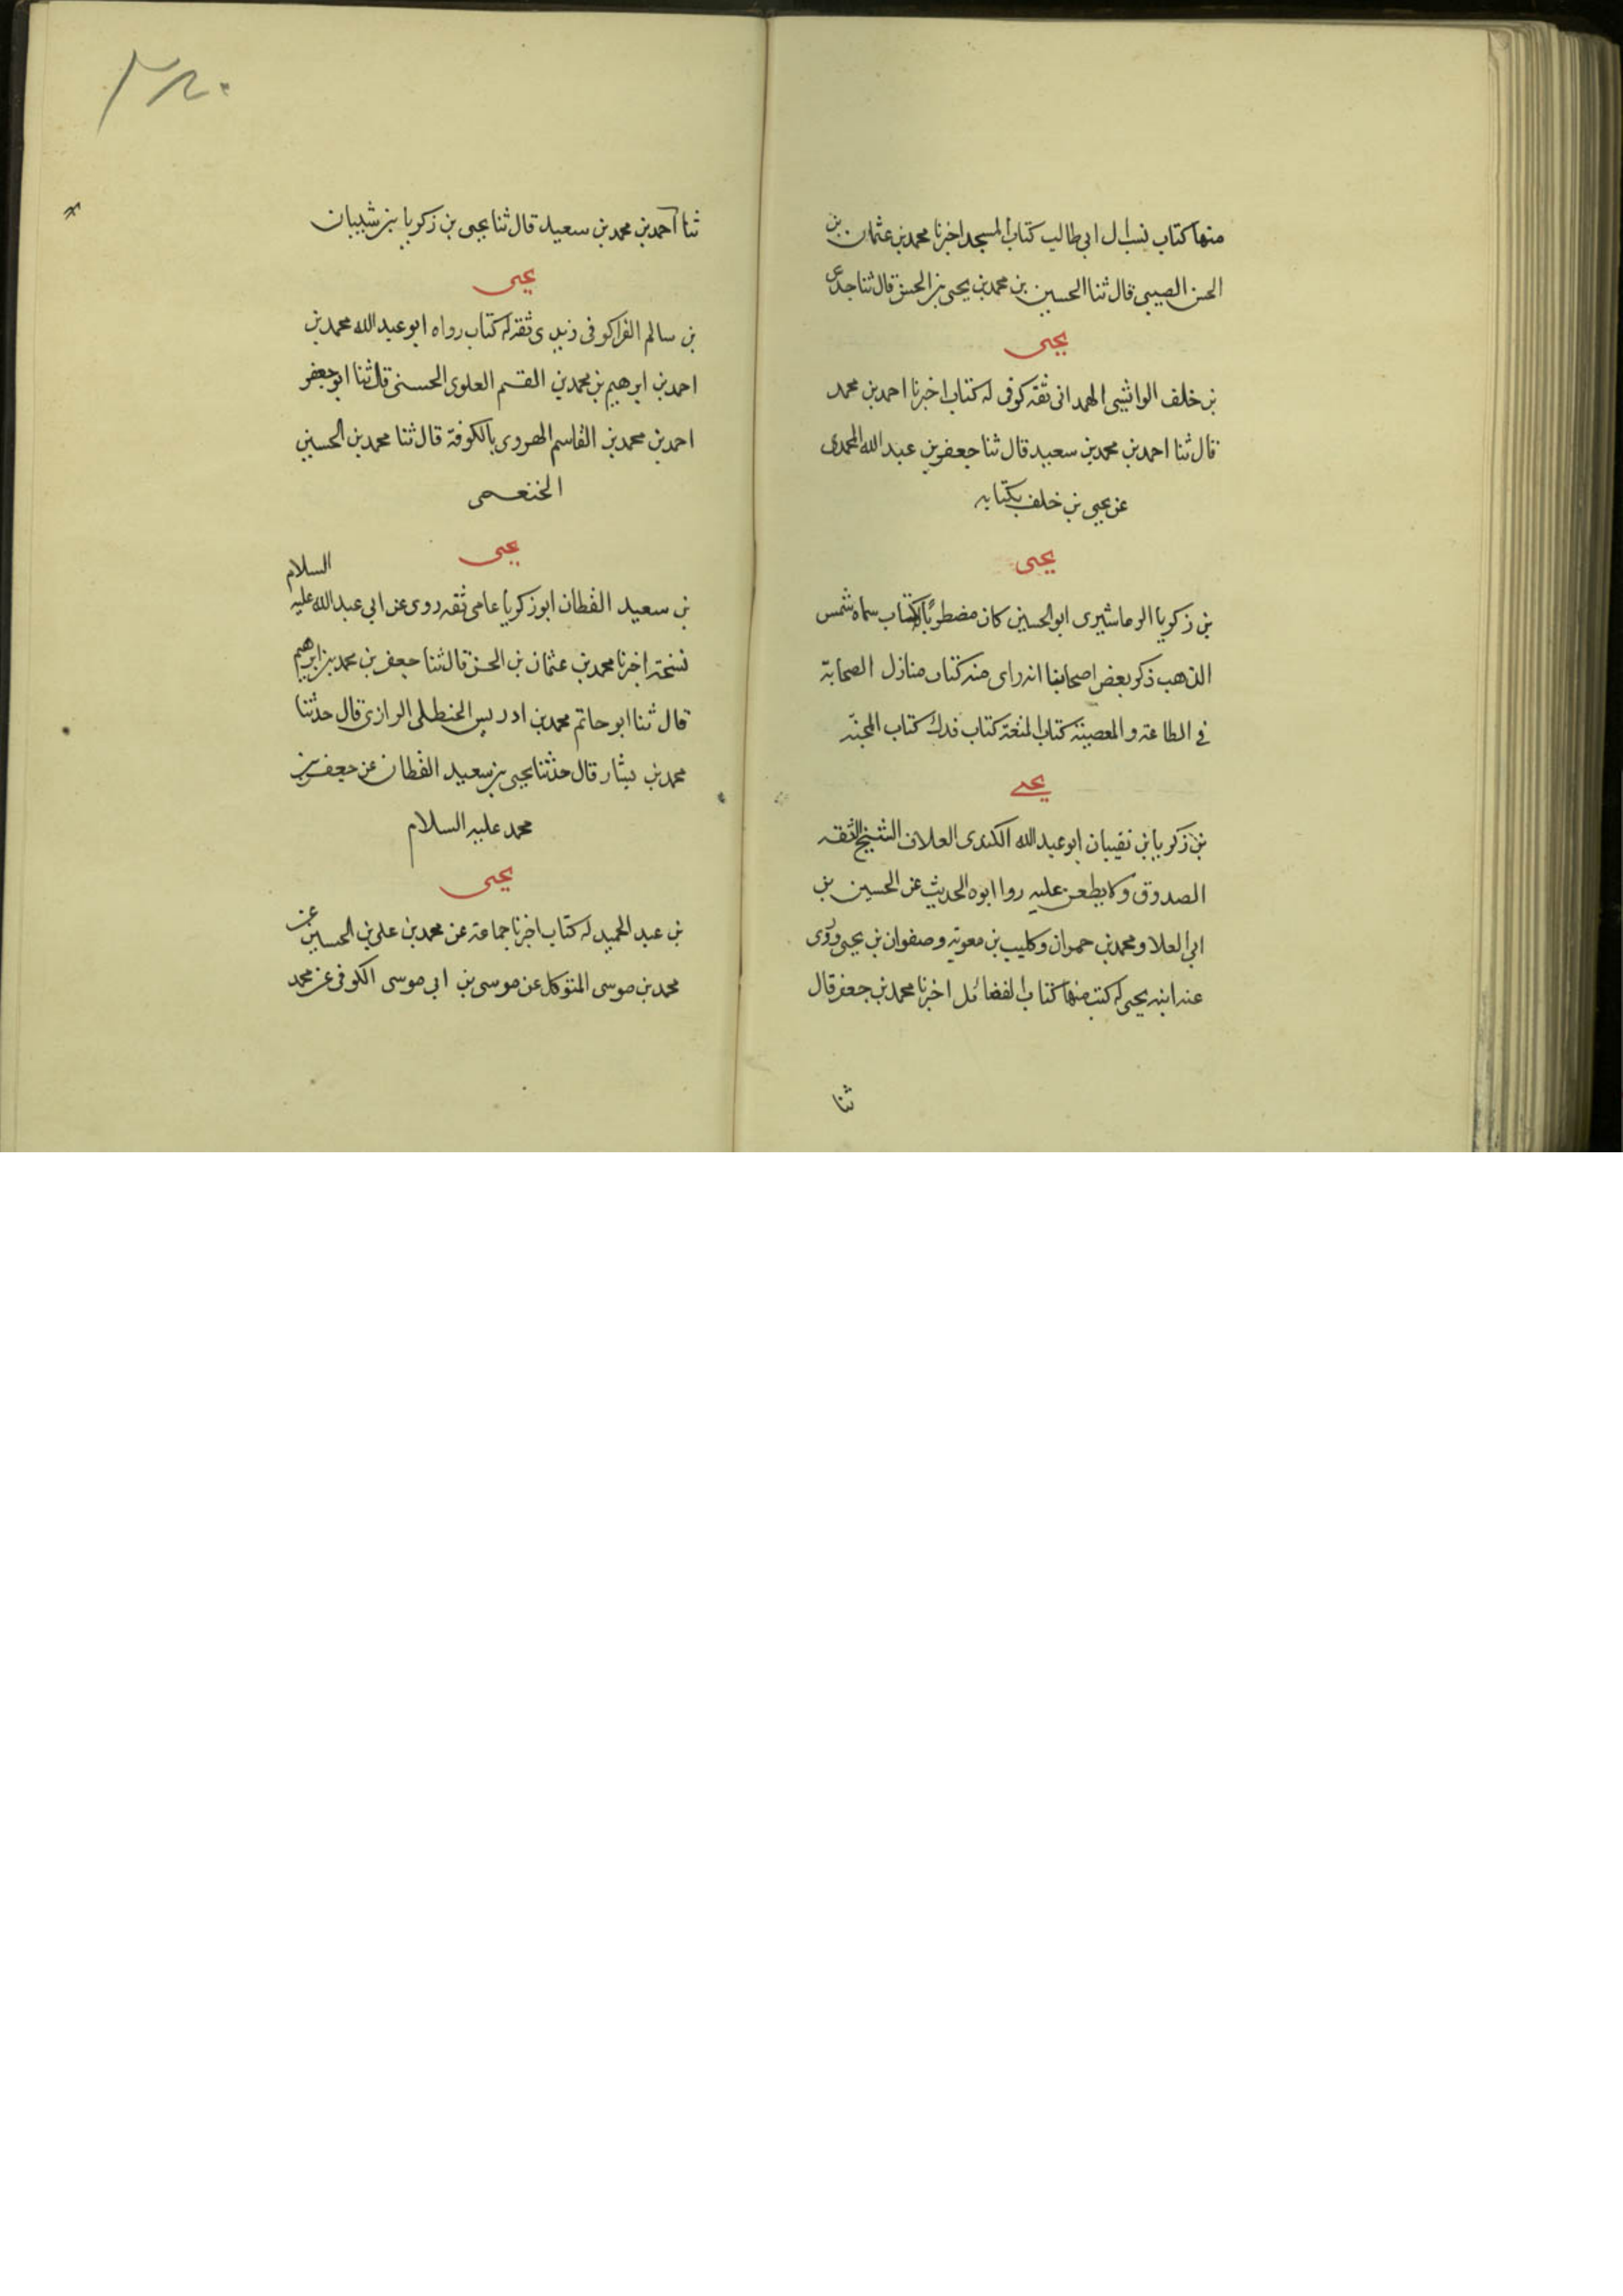 منها كتاب نسب ال ابي طالب كتاب المسجد اخبرنا محمد بن عثمان بن
الحسن النصيبي قال ثنا الحسين بن محمد بن يحيى بن الحسن قال ثنا جدى
يحيى
بن خلف الوابشي الهمداني ثقه كوفي له كتاب اخبرنا احمد بن محمد
قال ثنا احمد بن محمد بن سعيد قال ثنا جعفر بن عبد الله المحمدى
عن يحيى بن خلف بكتابه
يحيى
بن زكريا الرماشيرى ابو الحسين كان مضطربا له كتاب سماه شمس
الذهب ذكر بعض اصحابنا انه راى منه كتاب منازل الصحابة
في الطاعة و المعصية كتاب المتعة كتاب فدك كتاب المحبّة
يحيى
بن زكريا بن ابو عبد الله الكندى العلاف الشيخ الثقه
الصدوق ولا يطعن عليه روا ابوه الحديث عن الحسين بن
ابي العلا ومحمد بن حمران وكليب بن معوية وصفوان بن يحيى وروى
عنه ابنه يحيى له كتب منها كتاب الفضائل اخبرنا محمد بن جعفر قال
ثنا
ثنا احمد بن محمد بن سعيد قال ثنا يحيى بن زكريا بن شيبان
يحيى
بن سالم الفرا كوفى زيدى ثقة له كتاب رواه ابو عبد الله محمد بن
احمد بن ابرهيم بن محمد بن القسم العلوى الحسنى قال ثنا ابو جعفر
احمد بن محمد بن القاسم الهروى بالكوفة قال ثنا محمد بن الحسين
الخثعمى
يحيى
بن سعيد القطان ابو زكريا عامى ثقه روى عن ابي عبد الله عليه السلام
نسخة اخبرنا محمد بن عثمان بن الحسن قال ثنا جعفر بن محمد بن ابرهيم
قال ثنا ابو حاتم محمد بن ادريس الحنظلى الرازى قال حدثنا
محمد بن بشار قال حدثنا يحيى بن سعيد القطان عن جعفر بن
محمد عليه السلام
يحيى
بن عبد الحميد له كتاب اخبرنا جماعة عن محمد بن على بن الحسين عن
محمد بن موسى المتوكل عن موسى بن ابى موسى الكوفى عن محمد